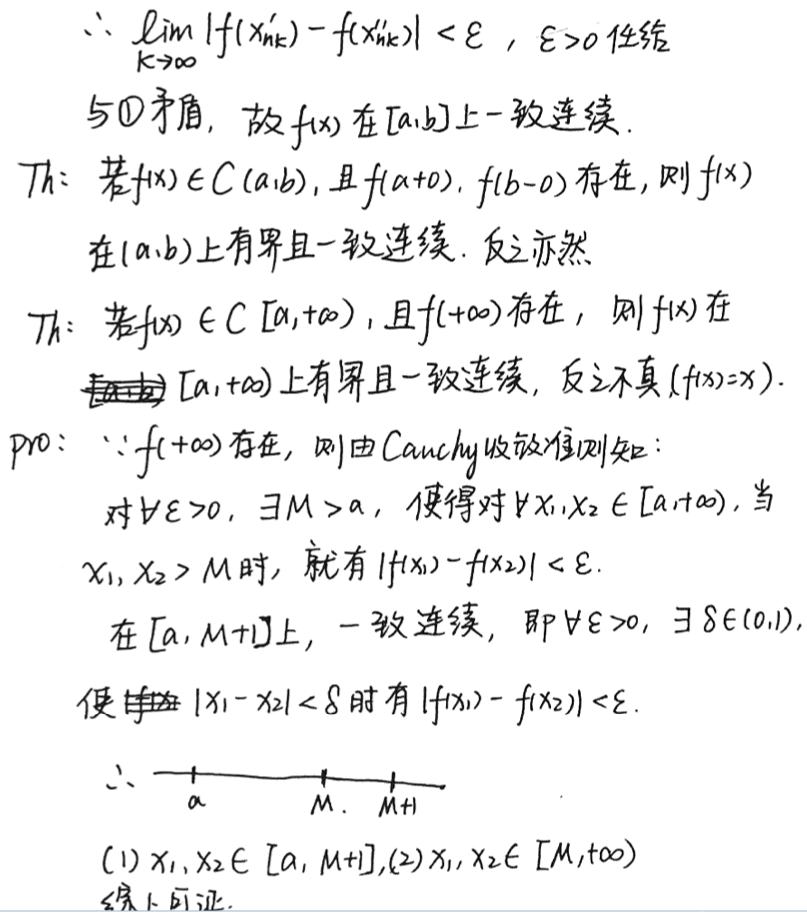 ∴ lim_{k→∞} |f(x'_{nk}) - f(x''_{nk})| < ε , ε>0 任给
与①矛盾, 故 f(x) 在 [a,b] 上一致连续.
Th: 若f(x) ∈ C(a,b), 且 f(a+0), f(b-0) 存在, 则 f(x)
在(a,b)上有界且一致连续. 反之亦然
Th: 若f(x) ∈ C [a,+∞), 且f(+∞)存在, 则 f(x) 在
[a,+∞) 上有界且一致连续, 反之不真 (f(x)=x).
pro: ∵ f(+∞) 存在, 则由Cauchy收敛准则知:
对∀ε>0, ∃M>a, 使得对∀x₁,x₂ ∈ [a,+∞), 当
x₁, x₂ > M时, 就有 |f(x₁) - f(x₂)| < ε.
在 [a, M+1]上, 一致连续, 即∀ε>0, ∃δ∈(0,1),
使 |x₁-x₂| < δ 时有 |f(x₁) - f(x₂)| < ε.
∴
a M. M+1
(1) x₁, x₂ ∈ [a, M+1], (2) x₁, x₂ ∈ [M,+∞)
综上可证.